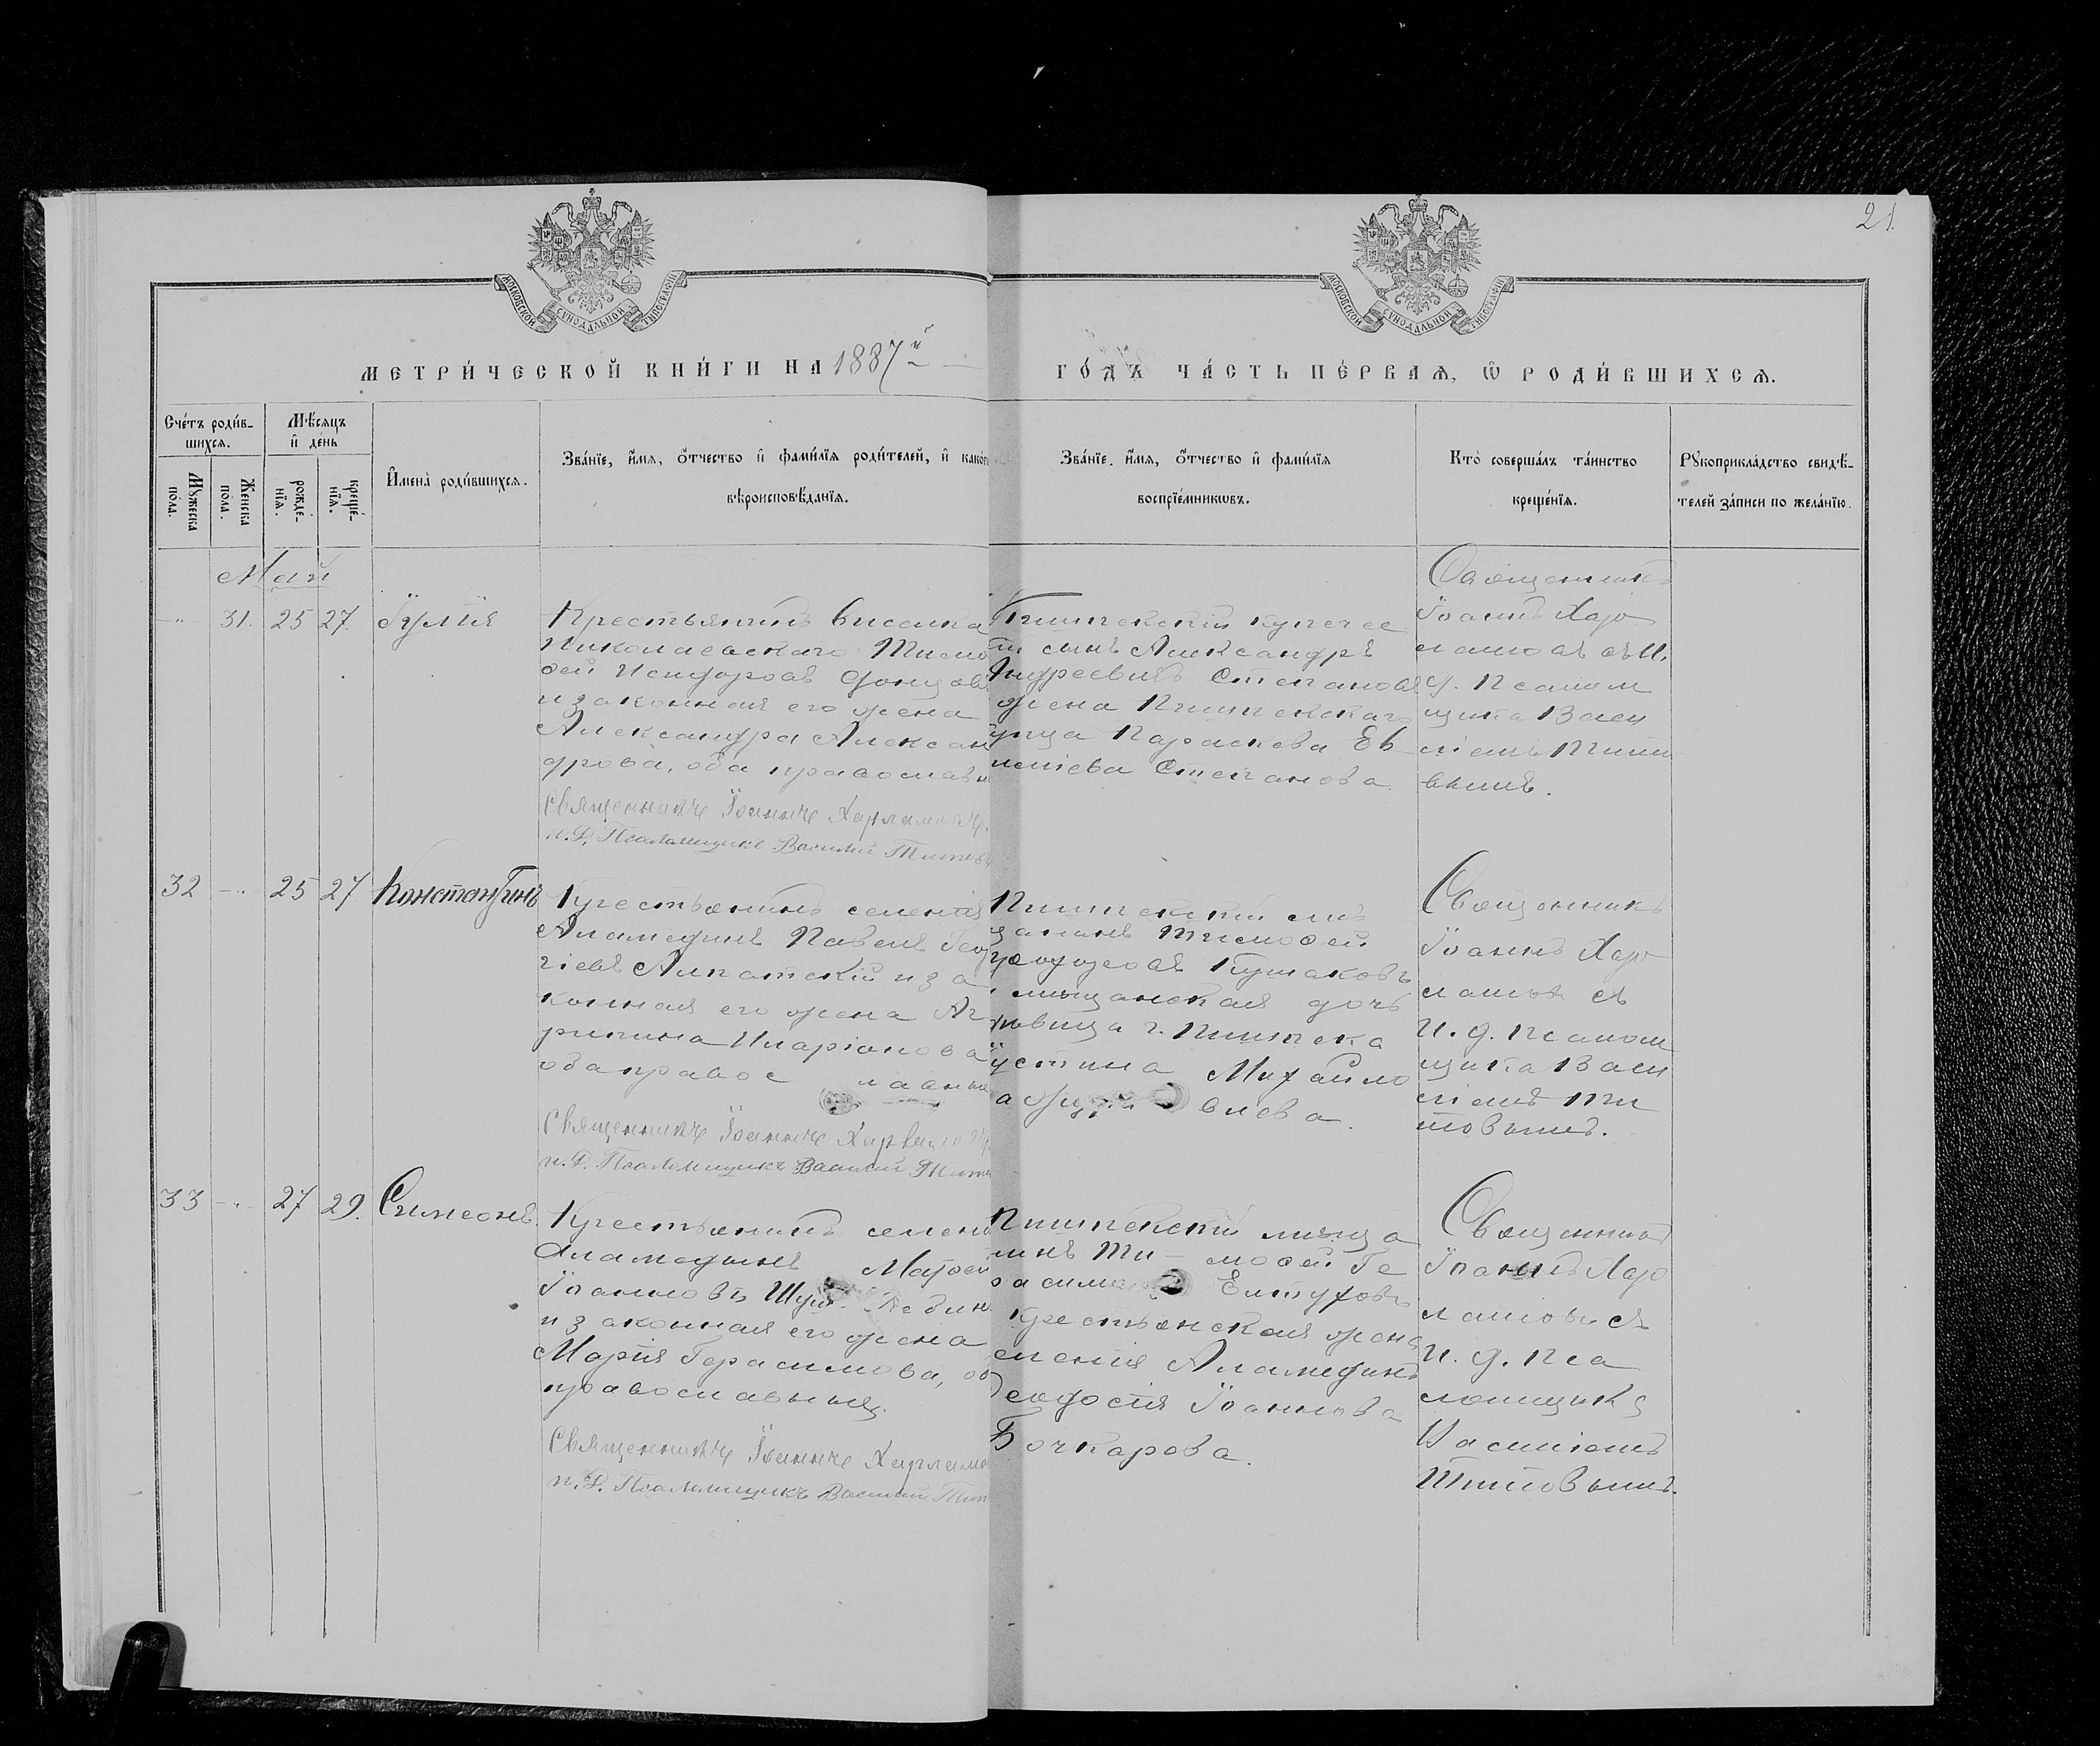 21.
МОСКОВСКОЙ СѴНОДАЛЬНОЙ ТИПОГРАФІИ
МОСКОВСКОЙ СѴНОДАЛЬНОЙ ТИПОГРАФІИ
МЕТРИ́ЧЕСКОЙ КНИ́ГИ НА 1887й
ГО́ДЪ ЧА́СТЬ ПЕ́РВАѦ, Ѽ РОДИ́ВШИХСѦ.
Сче́тъ роди́в-
шихсѧ.
Мꙋ́жеска по́ла.
Же́нска по́ла.
Мѣ́сѧцъ
и҆ де́нь
рожде́-нїѧ.
креще́-нїѧ.
И҆мена̀ роди́вшихсѧ.
Зва́нїе, и҆́мѧ, ѻ҆́тчество и҆ фами́лїѧ роди́телей, и҆ како́гѡ
вѣроисповѣ́данїѧ.
Зва́нїе. и҆́мѧ, ѻ҆́тчество и҆ фами́лїѧ
воспрїе́мникѡвъ.
Кто̀ соверша́лъ та́инство
креще́нїѧ.
Рꙋкоприкла́дство свидѣ́-
телей за́писи по жела́нїю.
Май
31. 25 27. Іулія
Крестьянинъ висилка
Николаевскаго Тимо
ѳей Исидоровъ Донцовъ
и законная его жена
Александра Алексан
дрова, оба православн
Священникъ Іоаннъ Харламовъ.
и. д. Псаломщикъ Василій Титовъ
Пишпекскій купечес
сынъ Александръ
Андреевичъ Степановъ
жена Пишпекскаго
Параскева Ев
Степанова.
Священникъ
Іоаннъ Хар
ламовъ съ И.
д. Псалом
щика Васи
ліемъ Тито
вымъ.
32 25 27 Константинъ
Крестьянинъ селенія
Аламединъ Павелъ Геор
гіевъ Алпатскій и за
конная его жена Аг
рипина Иларіонова
оба православные
Священникъ Іоаннъ Харламовъ.
и. д. Псаломщикъ Василій Тито
Пишпекскій мѣ
щанинъ Тимоѳей
мѣщанская дочь
дѣвица г. Пишпека
устина Михайло
Священникъ
Іоаннъ Хар
ламовъ съ
И. д. псалом
щика Васи
ліемъ Ти
товымъ.
33 27 29. Симеонъ.
Крестьянинъ селені
Аламединъ Матѳей
Іоанновъ
и законная его жена
Марія Герасимова, об
православныя.
Священникъ Іоаннъ Харламо
и. д. Псаломщикъ Василій Тит
Пишпекскій мѣща
нинъ Тимоѳей Ге
расимо Елтуховъ
крестьянская жена
еленія Аламединъ
еодосія Іоаннова
Бочкарова.
Священник
Іоаннъ Хар
ламовъ съ
И. д. пса
ломщика
Василіемъ
Титовымъ.